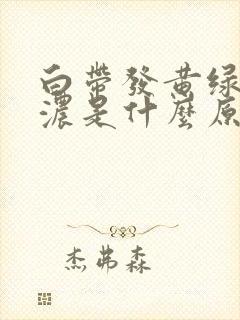 白帶發黄绿
濃是什麼原
杰弗森